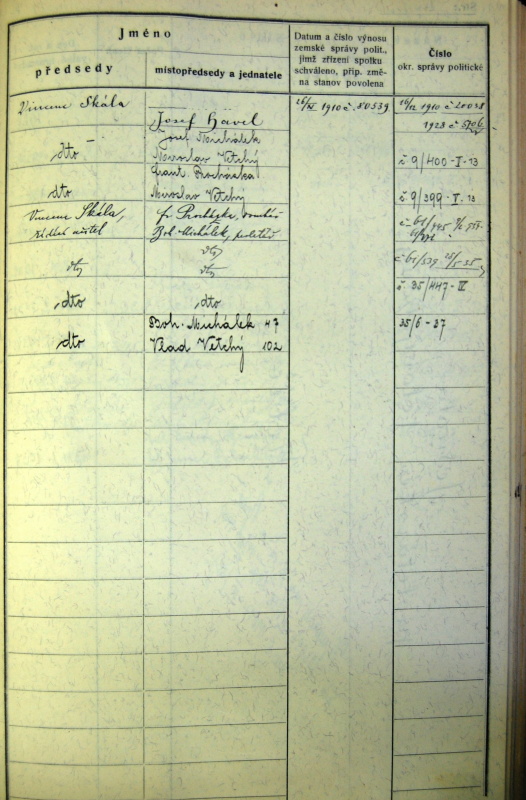 Jméno
předsedy
místopředsedy a jednatele
Datum a číslo výnosu
zemské správy polit.,
jímž zřízení spolku
schváleno, příp. změ-
na stanov povolena
Číslo
okr. správy politické
Vincenc Skála
Josef Havel
1910 č. 80539
1910 č 20038
1923 č
Josef Michálek
dto
Miroslav Vetchý
č 9/400-I-13
Frant. Procházka
dto
Miroslav Vetchý
č 9/399-I.13
Vincenc Skála,
řídící učitel
Fr Procházka,
Boh Michálek,
dto
dto
dto
dto
dto
č. 35/447-IV
Boh. Michálek 47
35/6-37
dto
Vlad Vetchý 102